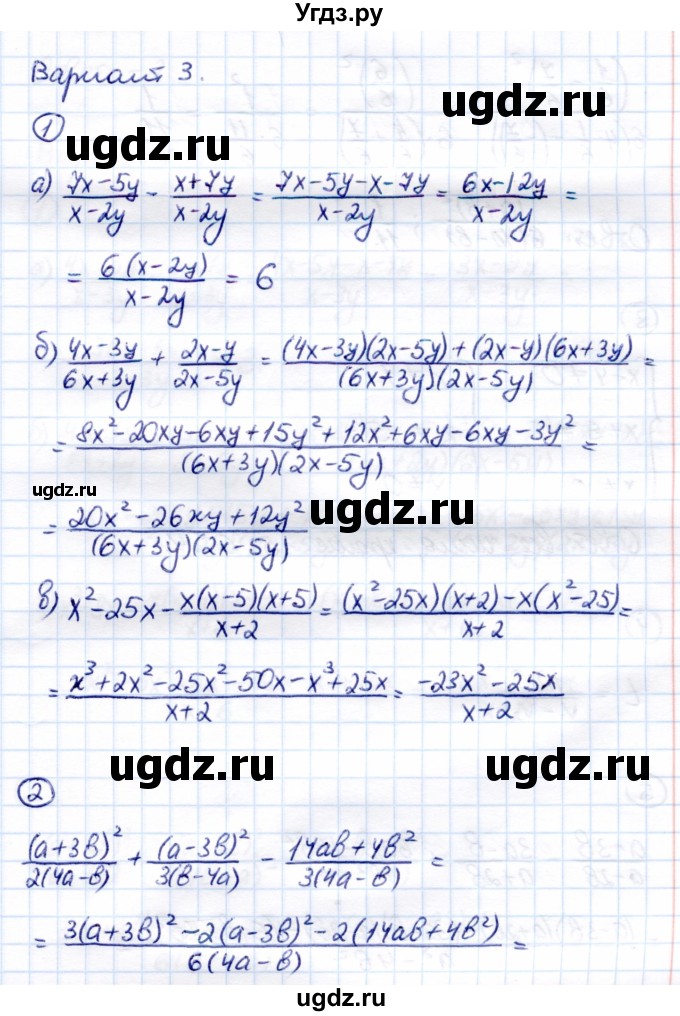 Угдз.ру
Вариант 3.
ugdz.ru
1
ugdz.ru
а) (7x-5y)/(x-2y) - (x+7y)/(x-2y) = (7x-5y-x-7y)/(x-2y) = (6x-12y)/(x-2y) =
= (6(x-2y))/(x-2y) = 6
ugdz.ru
б) (4x-3y)/(6x+3y) + (2x-y)/(2x-5y) = ((4x-3y)(2x-5y)+(2x-y)(6x+3y))/((6x+3y)(2x-5y)) =
= (8x²-20xy-6xy+15y²+12x²+6xy-6xy-3y²)/((6x+3y)(2x-5y)) =
ugdz.ru
= (20x²-26xy+12y²)/((6x+3y)(2x-5y))
ugdz.ru
в) x²-25x - (x(x-5)(x+5))/(x+2) = ((x²-25x)(x+2)-x(x²-25))/(x+2) =
= (x³+2x²-25x²-50x-x³+25x)/(x+2) = (-23x²-25x)/(x+2)
ugdz.ru
ugdz.ru
2
(a+3в)²/(2(4a-в)) + (a-3в)²/(3(в-4a)) - (14aв+4в²)/(3(4a-в)) =
= (3(a+3в)²-2(a-3в)²-2(14aв+4в²))/(6(4a-в)) =
ugdz.ru